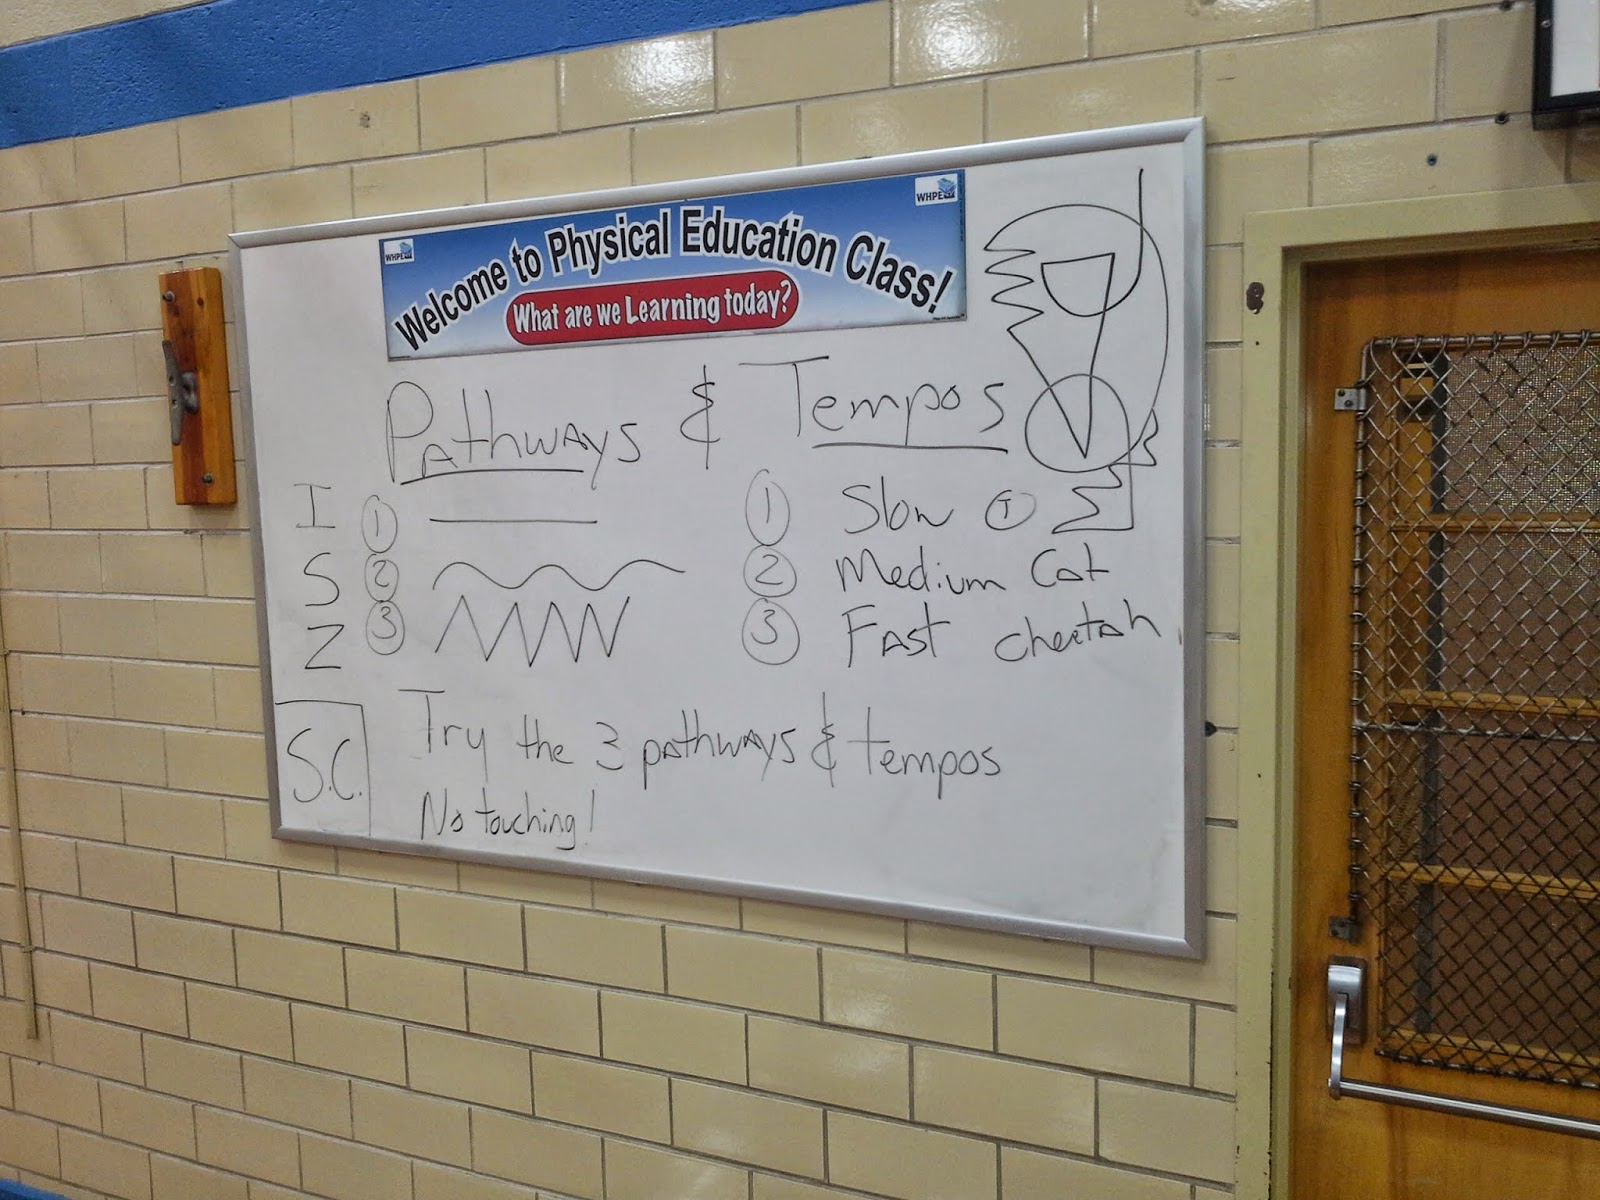 WHPE
WHPE
Welcome to Physical Education Class!
What are we Learning today?
Pathways & Tempos
I 1 1 Slow T
S 2 2 Medium Cat
Z 3 3 Fast cheetah
S.C. Try the 3 pathways & tempos
No touching!